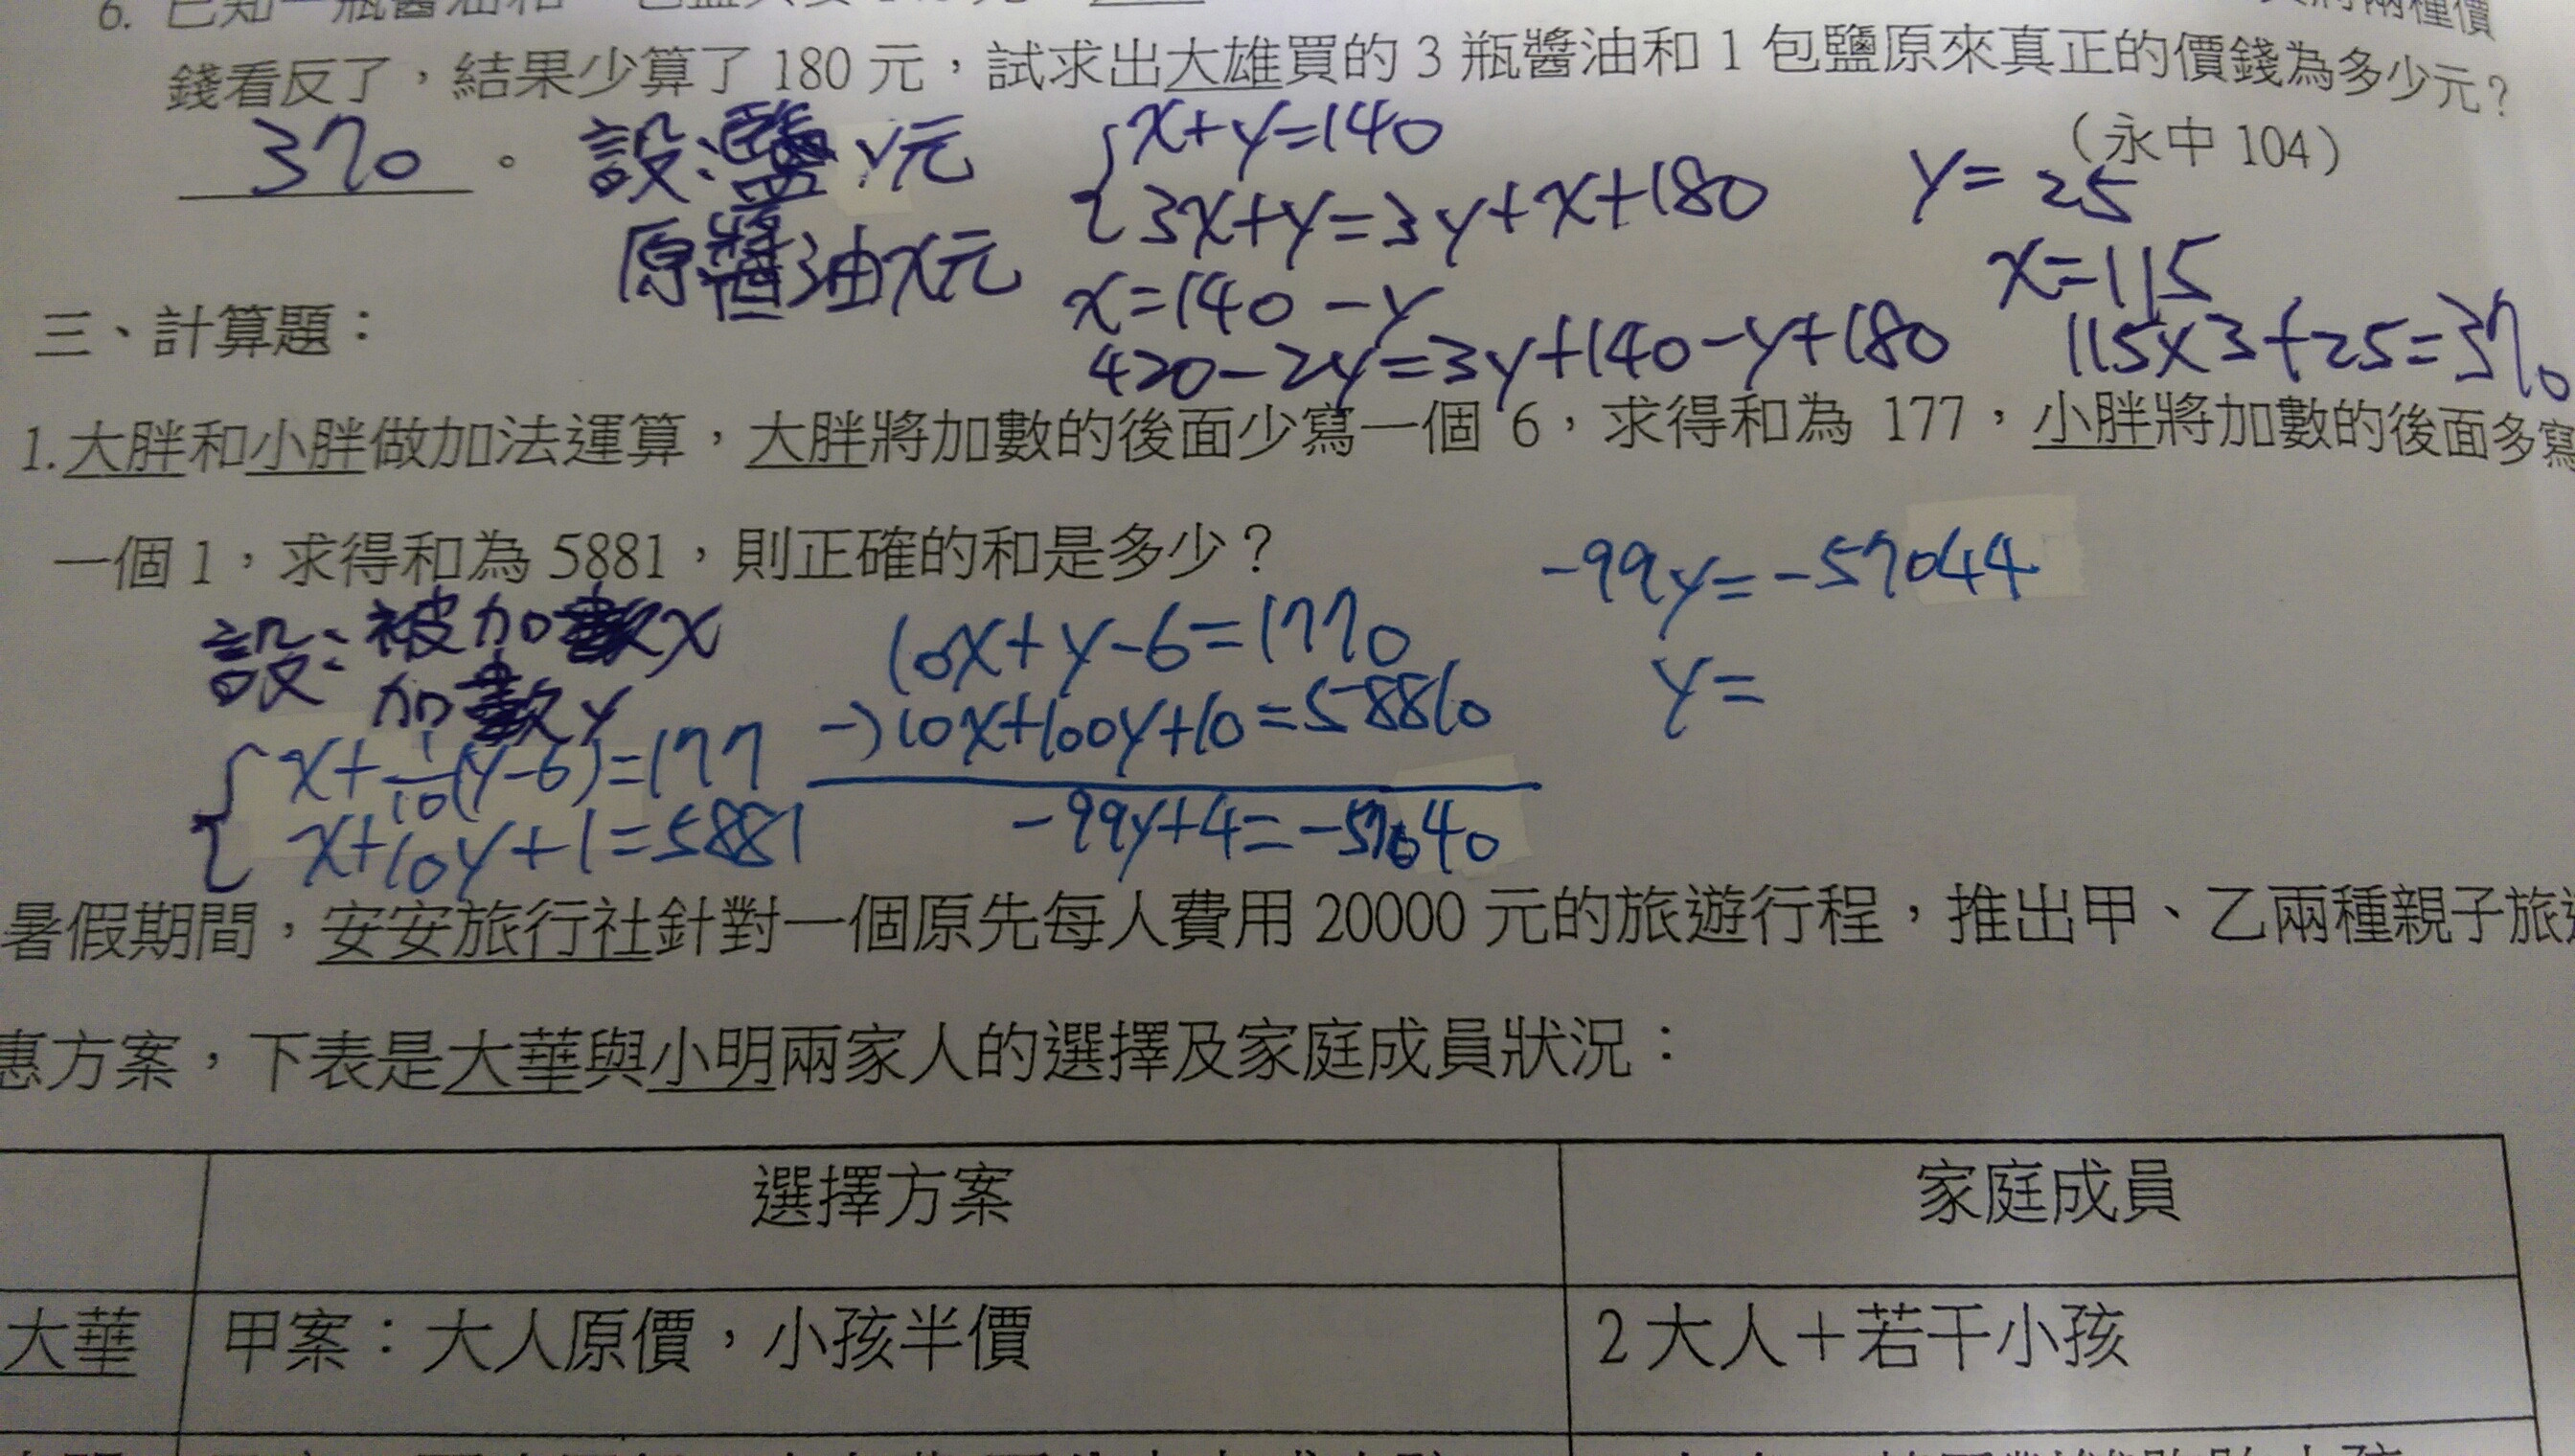 6. 已知一瓶醬油和一包鹽共要
兩種價
錢看反了，結果少算了 180 元，試求出大雄買的 3 瓶醬油和 1 包鹽原來真正的價錢為多少元？
（永中 104）
370。
設：鹽 y元
原醬油x元
x+y=140
3x+y=3y+x+180
x=140-y
420-2y=3y+140-y+180
y=25
x=115
115x3+25=370
三、計算題：
1.大胖和小胖做加法運算，大胖將加數的後面少寫一個 6，求得和為 177，小胖將加數的後面多寫
一個 1，求得和為 5881，則正確的和是多少？
設：被加數x
加數y
x+1/10(y-6)=177
x+10y+1=5881
10x+y-6=1770
-)10x+100y+10=58810
-99y+4=-57040
-99y=-57044
y=
暑假期間，安安旅行社針對一個原先每人費用 20000 元的旅遊行程，推出甲、乙兩種親子旅遊
惠方案，下表是大華與小明兩家人的選擇及家庭成員狀況：
選擇方案 家庭成員
大華 甲案：大人原價，小孩半價 2 大人＋若干小孩